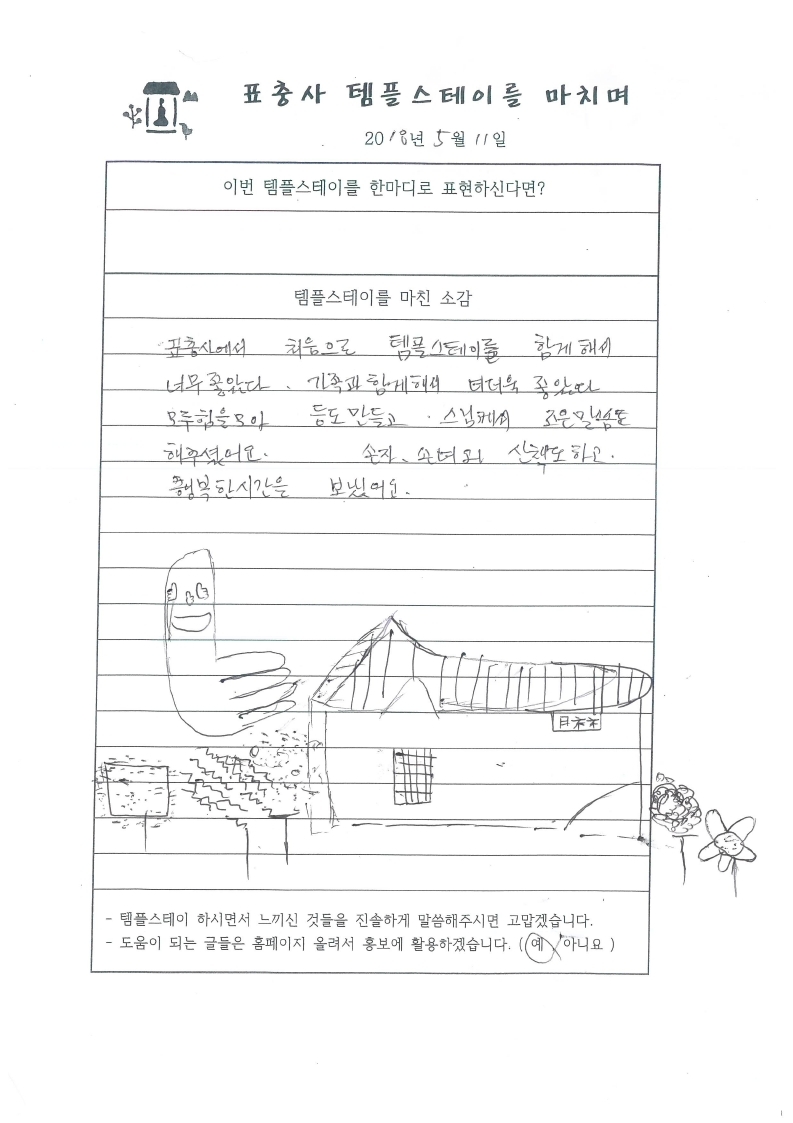 표충사 템플스테이를 마치며
2018년 5월 11일
이번 템플스테이를 한마디로 표현하신다면?
템플스테이를 마친 소감
표충사에서 처음으로 템플스테이를 함께해서
너무좋았다. 가족과함께해서 더더욱 좋았다
모두힘을모아 등도만들고. 스님께서 조은말씀도
해주셨어요. 손자, 손녀와 산책도하고.
행복한시간을 보냈어요.
- 템플스테이 하시면서 느끼신 것들을 진솔하게 말씀해주시면 고맙겠습니다.
- 도움이 되는 글들은 홈페이지 올려서 홍보에 활용하겠습니다. ( 예 / 아니요 )